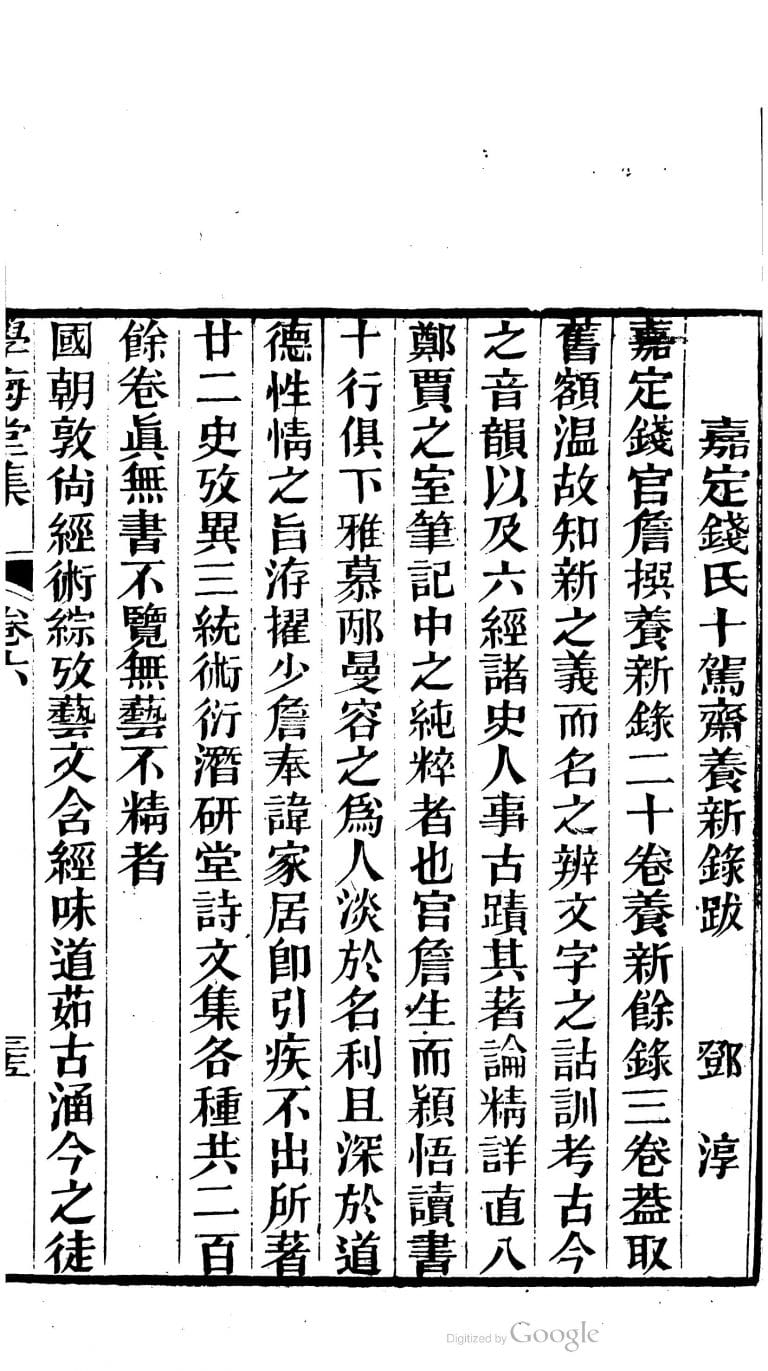 嘉定錢氏十駕齋養新錄跋 鄧淳
嘉定錢官詹撰養新錄二十卷養新餘錄三卷葢取
舊額温故知新之義而名之辨文字之詁訓考古今
之音韻以及六經諸史人事古蹟其著論精詳直八
鄭賈之室筆記中之純粹者也官詹生而穎悟讀書
十行俱下雅慕邴曼容之爲人淡於名利且深於道
德性情之旨洊擢少詹奉諱家居卽引疾不出所著
廿二史攷異三統術衍潛研堂詩文集各種共二百
餘卷眞無書不覽無藝不精者
國朝敦尚經術綜攷藝文含經味道茹古涵今之徒
學海堂集 卷六
Digitized by Google